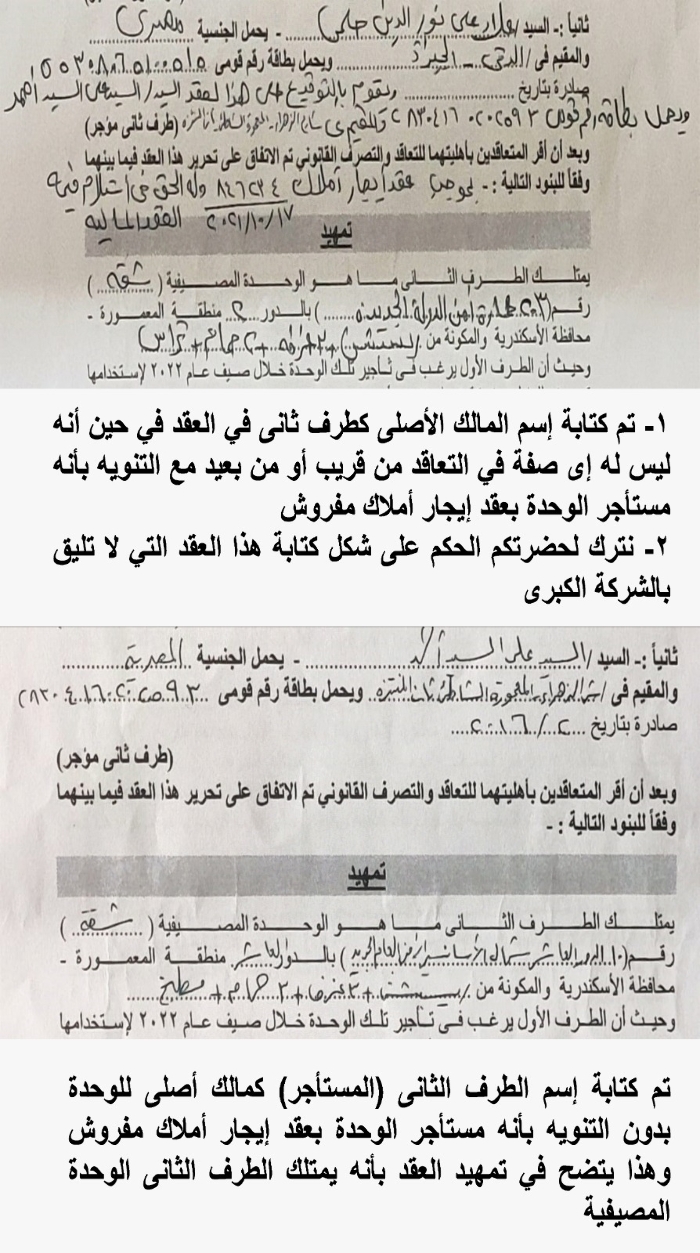 ثانياً :- السيد / علاء على نور الدين حلمى - يحمل الجنسية مصرى
والمقيم فى / الدقى - الجيزة ويحمل بطاقة رقم قومى
صادرة بتاريخ ويقوم بالتوقيع على هذا العقد السيد / السيد على السيد أحمد
ويحمل بطاقة رقم قومى ٢٨٣٠٤١٦٠٢٠٢٥٩٣ والمقيم فى (طرف ثانى مؤجر)
وبعد أن أقر المتعاقدين بأهليتهما للتعاقد والتصرف القانوني تم الاتفاق على تحرير هذا العقد فيما بينهما
وفقاً للبنود التالية :- بموجب عقد إيجار أملاك ٨٤٦٢٣٤ وله الحق فى استلام قيمة
٢٠٢١/١٠/١٧ العقد المالية
تمهيد
يمتلك الطرف الثانى ما هو الوحدة المصيفية ( شقة )
رقم ( ٢٠٣ عمارة أمن الدولة الجديدة ) بالدور ٢ منطقة المعمورة -
محافظة الأسكندرية والمكونة من ريسبشن + ٢ غرفة + ٢ حمام + تراس
وحيث أن الطرف الأول يرغب فى تأجير تلك الوحدة خلال صيف عام ٢٠٢٢ لإستخدامها
١- تم كتابة إسم المالك الأصلى كطرف ثانى في العقد في حين أنه
ليس له إى صفة في التعاقد من قريب أو من بعيد مع التنويه بأنه
مستأجر الوحدة بعقد إيجار أملاك مفروش
٢- نترك لحضرتكم الحكم على شكل كتابة هذا العقد التي لا تليق
بالشركة الكبرى
ثانياً :- السيد / السيد على السيد أحمد - يحمل الجنسية المصرية
والمقيم فى / ش الزهراء - المعمورة الشاطئ ثان المنتزه ويحمل بطاقة رقم قومى ٢٨٣٠٤١٦٠٢٠٢٥٩٣
صادرة بتاريخ ٢٠١٦/٢
(طرف ثانى مؤجر)
وبعد أن أقر المتعاقدين بأهليتهما للتعاقد والتصرف القانوني تم الاتفاق على تحرير هذا العقد فيما بينهما
وفقاً للبنود التالية :-
تمهيد
يمتلك الطرف الثانى ما هو الوحدة المصيفية ( شقة )
رقم ( ) بالدور العاشر منطقة المعمورة -
محافظة الأسكندرية والمكونة من ريسبشن + ٣ غرف + ٢ حمام + مطبخ
وحيث أن الطرف الأول يرغب فى تأجير تلك الوحدة خلال صيف عام ٢٠٢٢ لإستخدامها
تم كتابة إسم الطرف الثانى (المستأجر) كمالك أصلى للوحدة
بدون التنويه بأنه مستأجر الوحدة بعقد إيجار أملاك مفروش
وهذا يتضح في تمهيد العقد بأنه يمتلك الطرف الثانى الوحدة
المصيفية